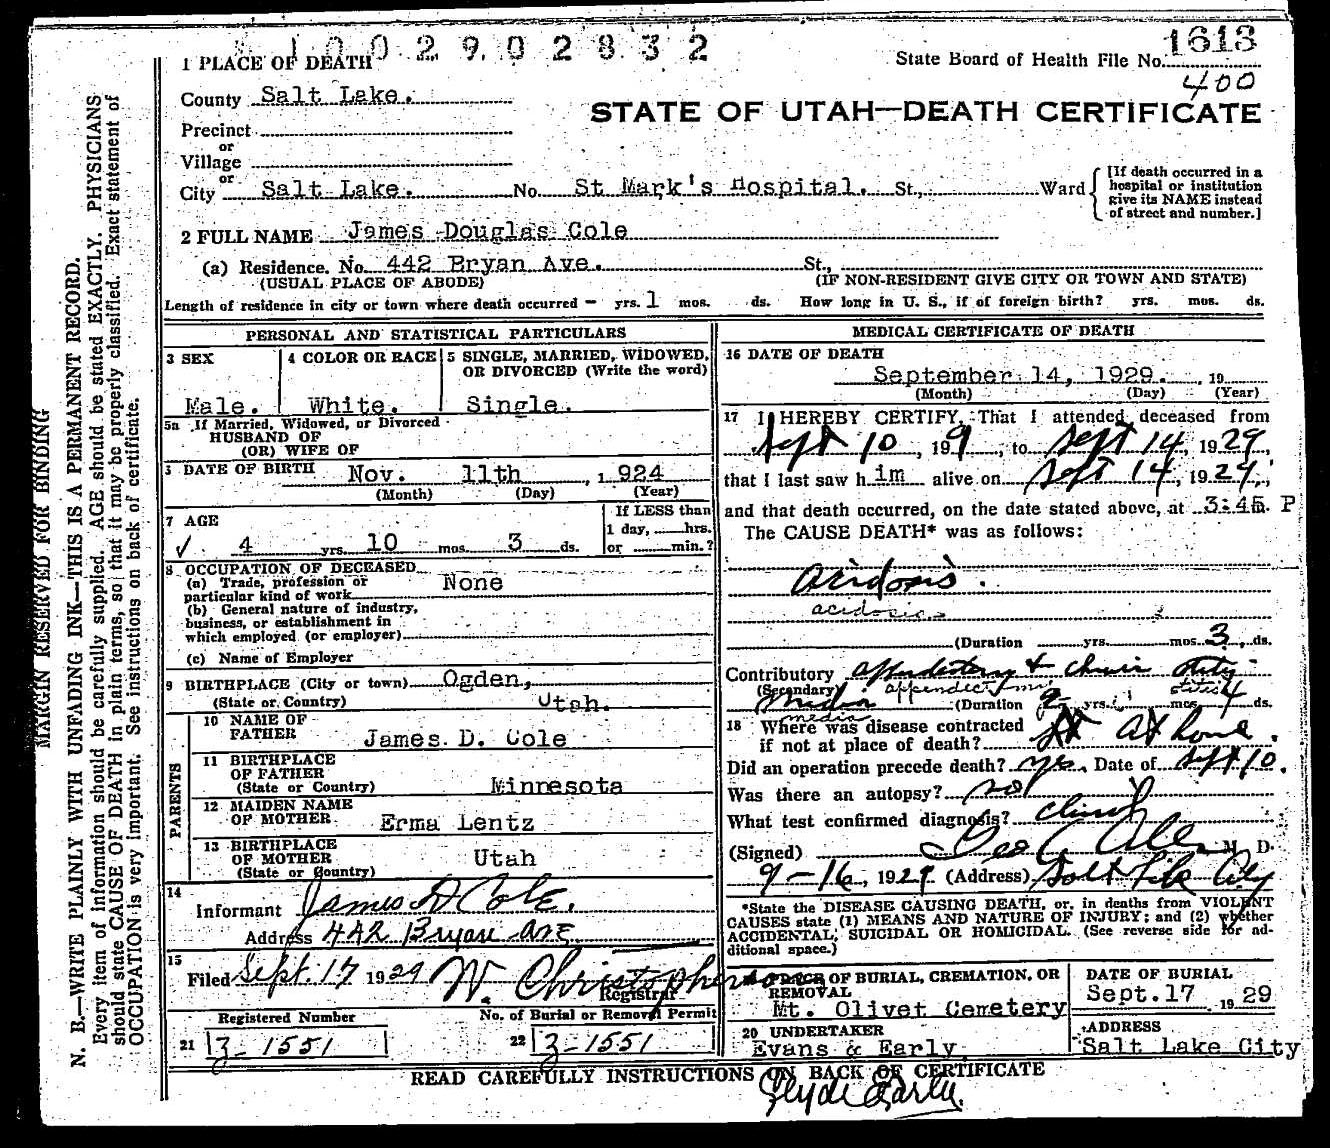 1002902832
1 PLACE OF DEATH
State Board of Health File No. 1613
400
County Salt Lake.
STATE OF UTAH—DEATH CERTIFICATE
Precinct
or
Village
or
City Salt Lake. No. St Mark's Hospital. St., Ward
[If death occurred in a hospital or institution give its NAME instead of street and number.]
2 FULL NAME James Douglas Cole
(a) Residence. No. 442 Bryan Ave. St.,
(USUAL PLACE OF ABODE) (IF NON-RESIDENT GIVE CITY OR TOWN AND STATE)
Length of residence in city or town where death occurred - yrs. 1 mos. ds. How long in U. S., if of foreign birth? yrs. mos. ds.
PERSONAL AND STATISTICAL PARTICULARS
3 SEX
4 COLOR OR RACE
5 SINGLE, MARRIED, WIDOWED, OR DIVORCED (Write the word)
Male. White. Single.
5a If Married, Widowed, or Divorced
HUSBAND OF
(OR) WIFE OF
DATE OF BIRTH Nov. 11th, 1924
(Month) (Day) (Year)
7 AGE
If LESS than
1 day, hrs.
or min.?
✓ 4 yrs. 10 mos. 3 ds.
8 OCCUPATION OF DECEASED
(a) Trade, profession or
particular kind of work None
(b) General nature of industry,
business, or establishment in
which employed (or employer)
(c) Name of Employer
9 BIRTHPLACE (City or town) Ogden,
(State or Country) Utah.
PARENTS
10 NAME OF
FATHER James D. Cole
11 BIRTHPLACE
OF FATHER
(State or Country) Minnesota
12 MAIDEN NAME
OF MOTHER Erma Lentz
13 BIRTHPLACE
OF MOTHER Utah
(State or Country)
14
Informant James D Cole.
Address 442 Bryan Ave
15
Filed Sept. 17 1929 W. Christopherson
Registrar
Registered Number No. of Burial or Removal Permit
21 3-1551 22 3-1551
MEDICAL CERTIFICATE OF DEATH
16 DATE OF DEATH
September 14, 1929. , 19
(Month) (Day) (Year)
17 I HEREBY CERTIFY, That I attended deceased from
Sept 10, 199, to Sept 14, 1929,
that I last saw h im alive on Sept 14, 1929,
and that death occurred, on the date stated above, at 3:45 P
The CAUSE DEATH* was as follows:
acidosis.
acidosis
(Duration yrs. mos. 3, ds.
Contributory
(Secondary) media (Duration yrs. mos. 4 ds.
media
18 Where was disease contracted
if not at place of death? At home.
Did an operation precede death? yes. Date of Sept 10.
Was there an autopsy? no
What test confirmed diagnosis?
(Signed) Geo M. D.
9-16, 1929 (Address) Salt Lake City
*State the DISEASE CAUSING DEATH, or, in deaths from VIOLENT
CAUSES state (1) MEANS AND NATURE OF INJURY; and (2) whether
ACCIDENTAL, SUICIDAL OR HOMICIDAL. (See reverse side for ad-
ditional space.)
PLACE OF BURIAL, CREMATION, OR
REMOVAL
Mt. Olivet Cemetery
DATE OF BURIAL
Sept.17 1929
20 UNDERTAKER
Evans & Early
ADDRESS
Salt Lake City
READ CAREFULLY INSTRUCTIONS ON BACK OF CERTIFICATE
Clyde Early.
MARGIN RESERVED FOR BINDING
N. B.—WRITE PLAINLY WITH UNFADING INK—THIS IS A PERMANENT RECORD.
Every item of information should be carefully supplied. AGE should be stated EXACTLY. PHYSICIANS
should state CAUSE OF DEATH in plain terms, so that it may be properly classified. Exact statement of
OCCUPATION is very important. See instructions on back of certificate.